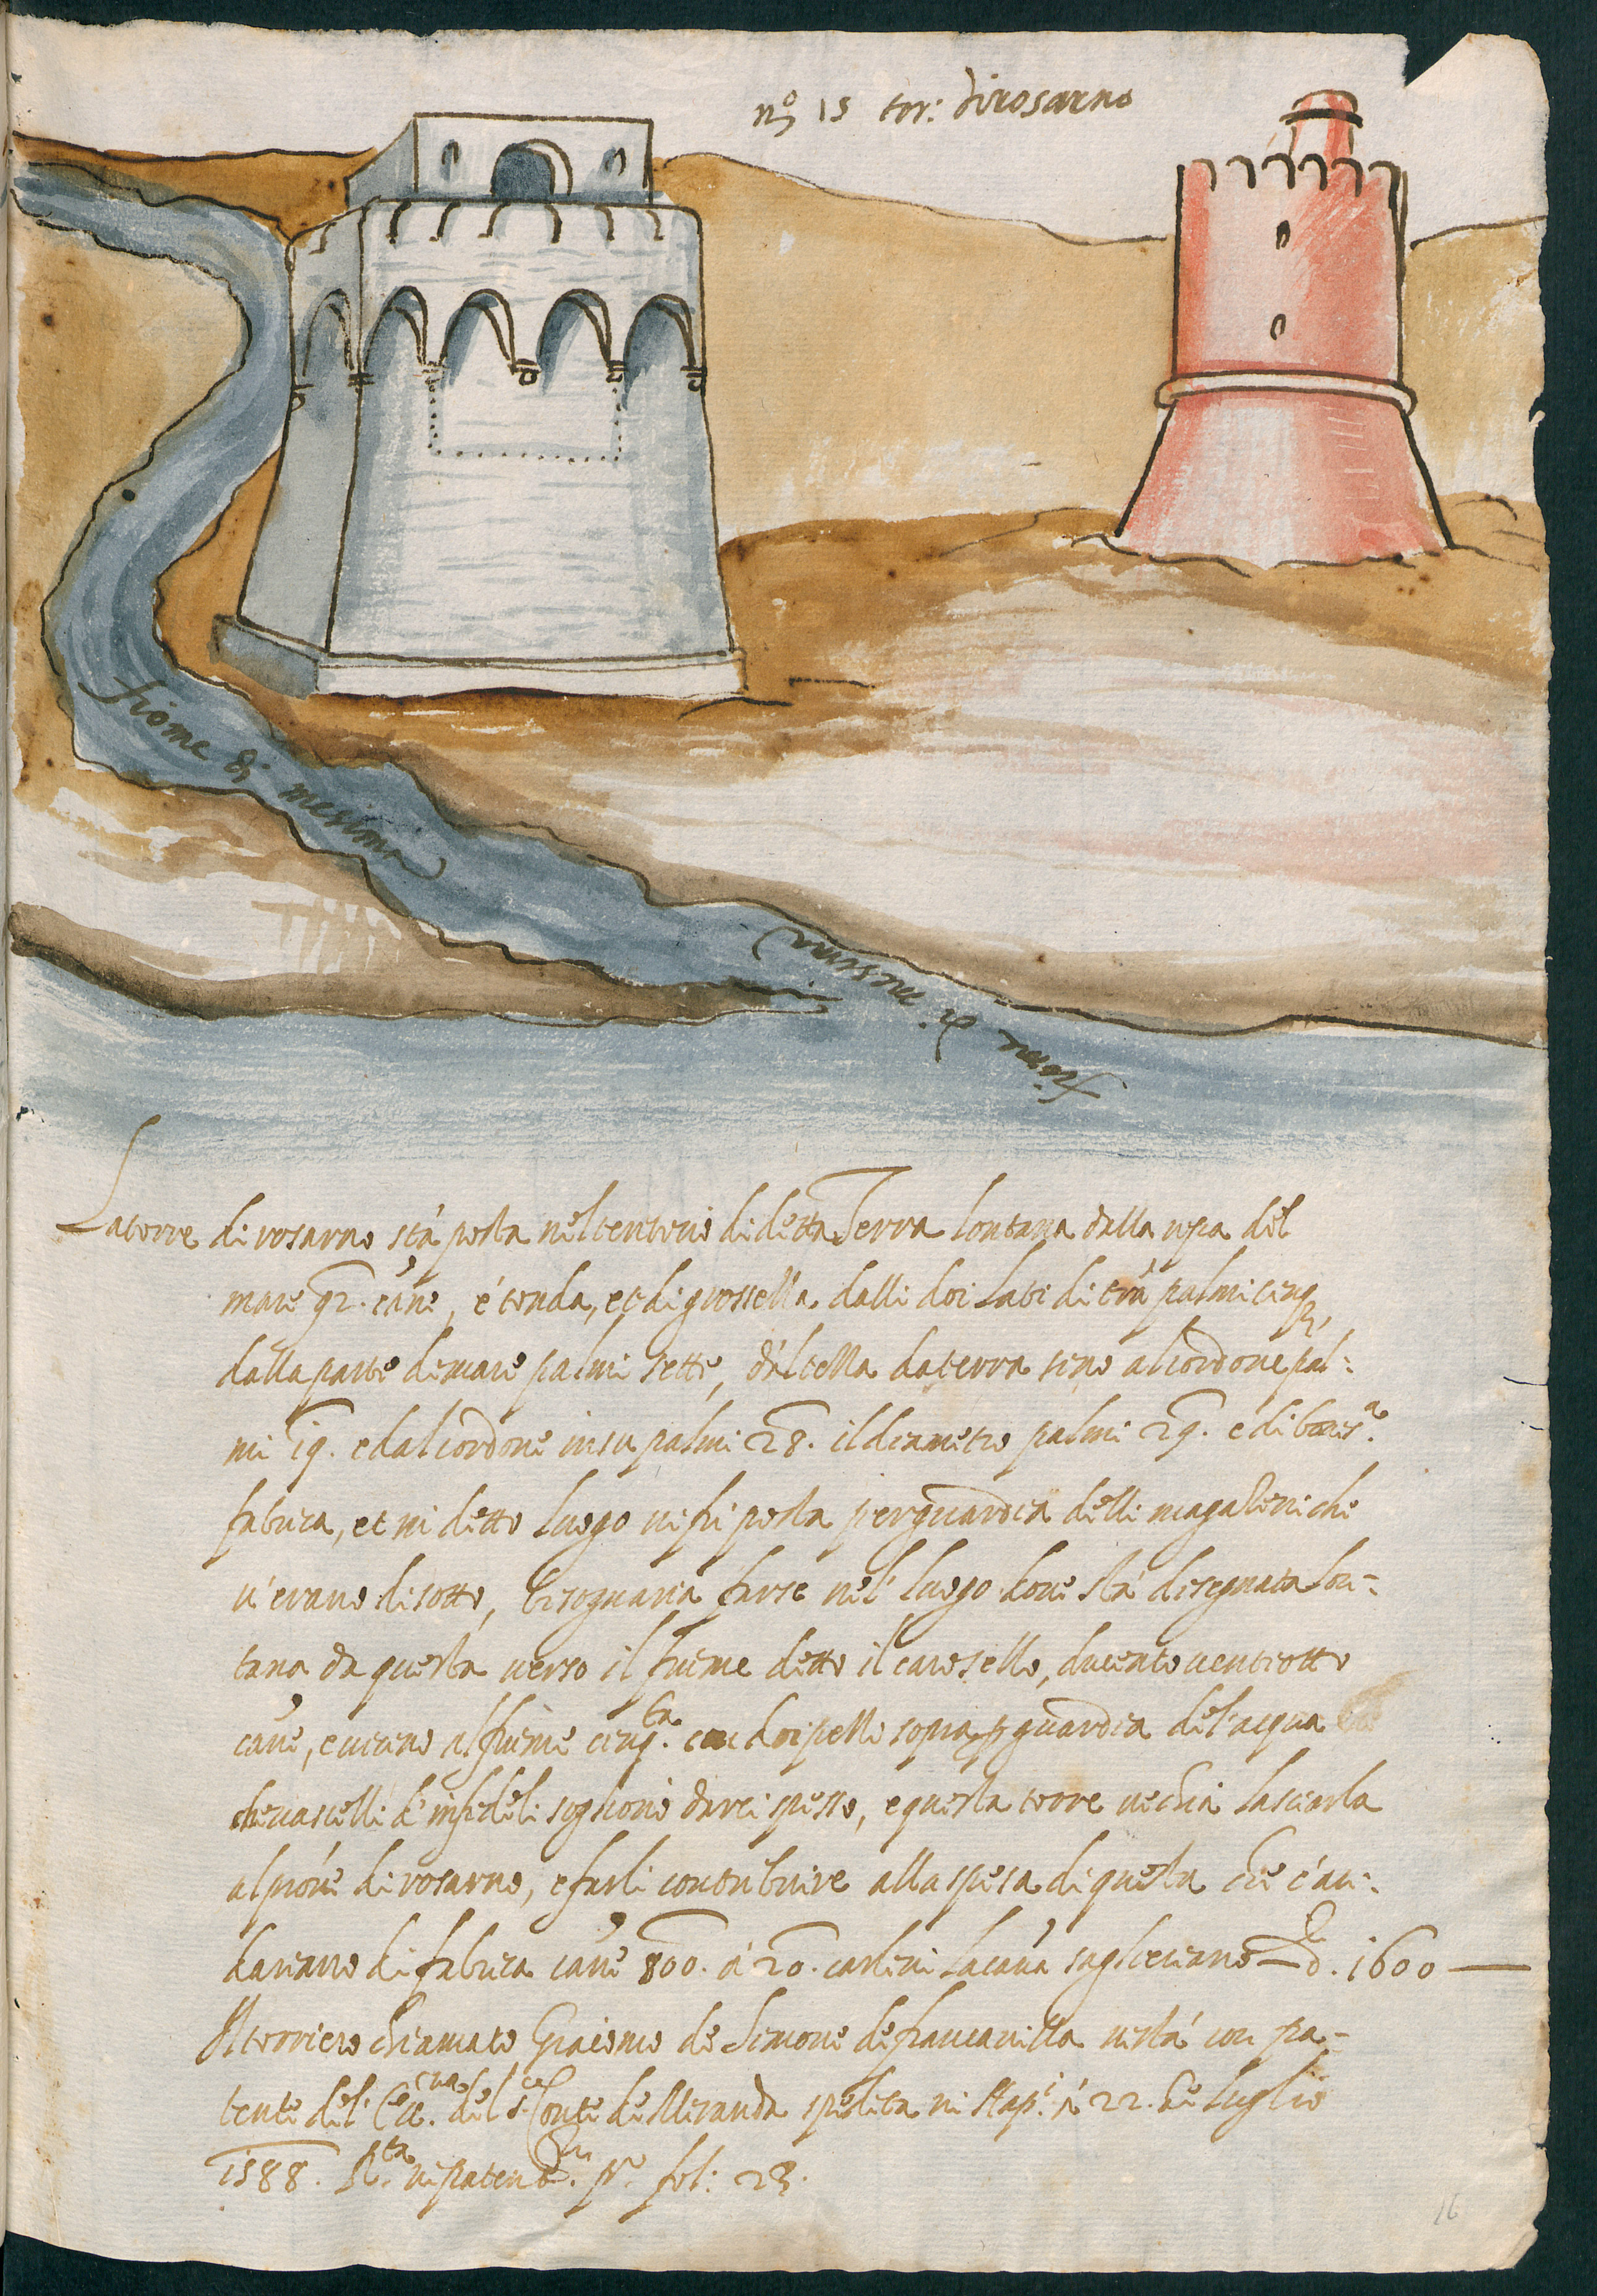 nº 15 tor: di rosarno
fiome di mesima
fiome di messima
La torre di rosarno stà posta nel territorio di detta Terra lontana dalla ripa del
mare 92. càne, é tonda, et di grossezza dalli doi lati di terra palmi cinq
dalla parte de mare palmi sette, d'altezza da terra sino al cordone pal:
mi 19. e dal cordone in su palmi 28. il diametro palmi 29. é di bonis.ª
fabrica, et in detto luogo vi fu posta per guardia delli magazeni che
v'erano di sotto, bisognaria farse nel luogo dove sta' disegnata lon-
tana da questa verso il fiume detto il caroselle, ducento ventiotto
càne, e vicino al fiume cinq.ta con doi pezzi sopra p guardia del'acqua
che vascelli d'infideli sogliono darci spesso, e questa torre vechia lasciarla
al prióre di rosarno, e farli contribuire alla spesa di questa che c'an-
dariano di fabrica càne 800. á 20. carlini la cana sagliriano — d. 1600 —
Il torriero chiamato Giacomo de Simone de francavilla vi stá con pa-
tente del' Ecc. del s. Conte de Miranda spedita in Nap.i á 22. de luglio
1588. R.ta in patent. pº fol: 23.
16